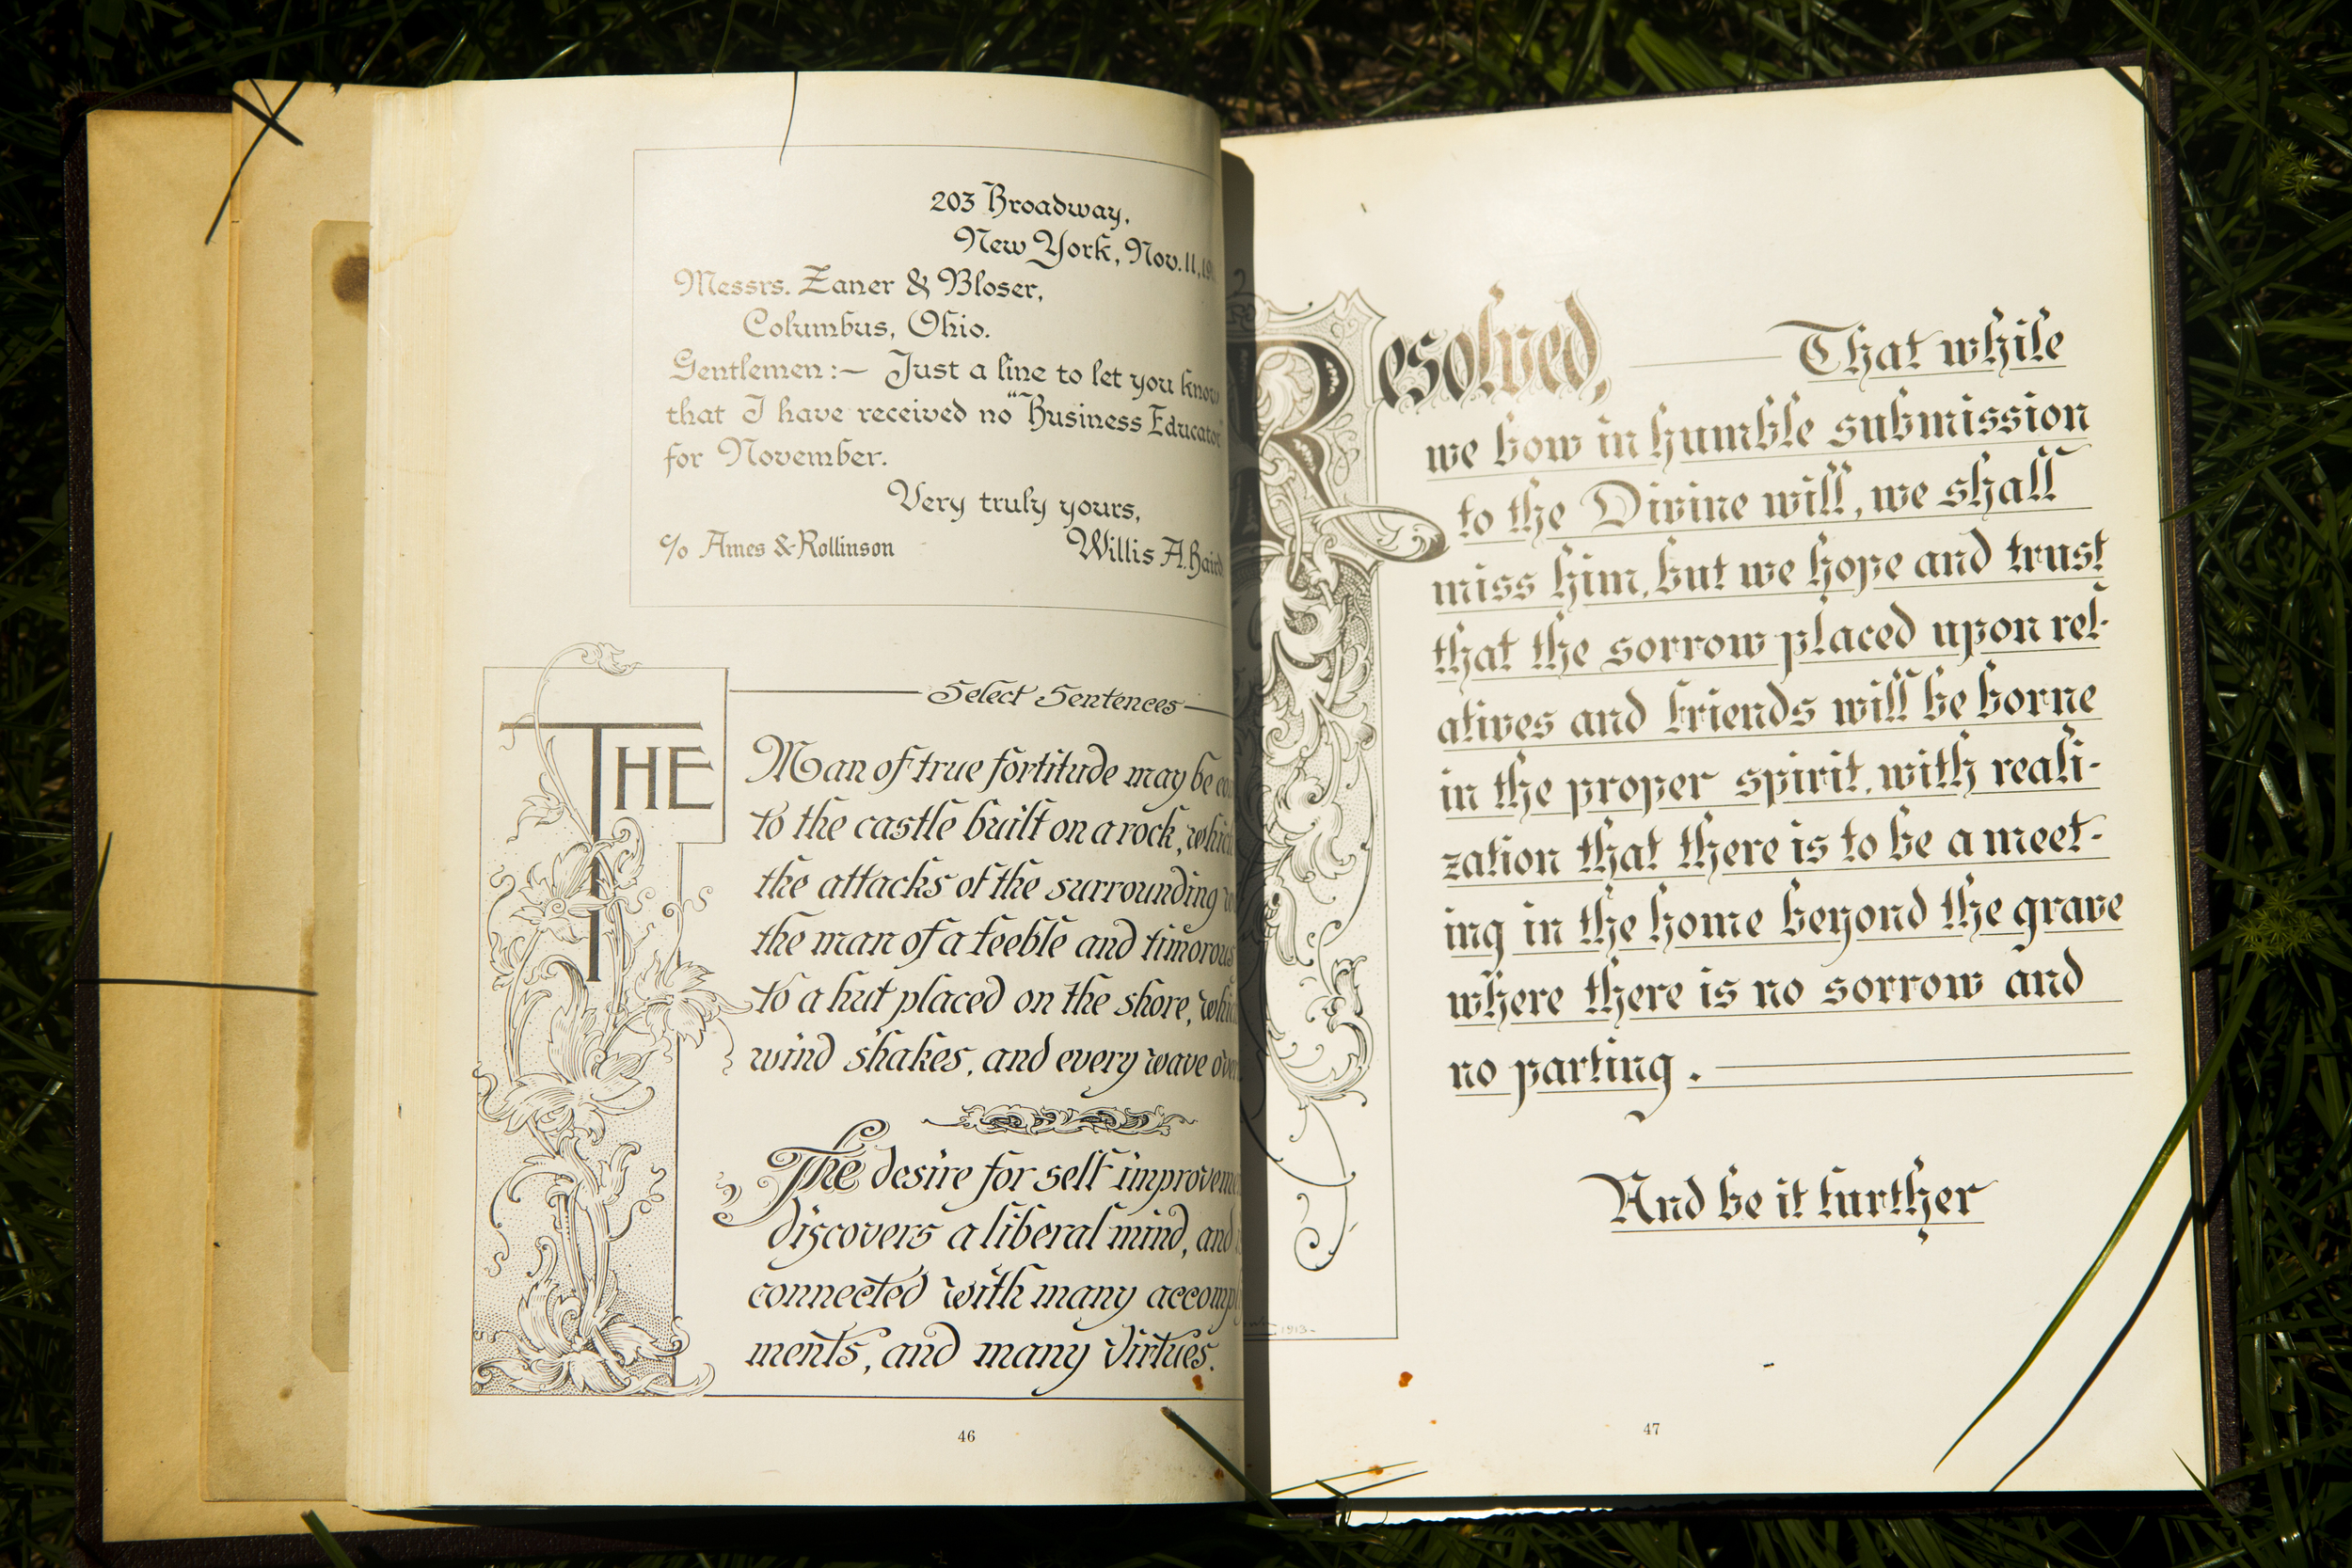 203 Broadway,
New York, Nov. 11,
Messrs. Zaner & Bloser,
Columbus, Ohio.
Gentlemen :— Just a line to let you know
that I have received no "Business Educator"
for November.
Very truly yours,
c/o Ames & Rollinson
Willis A. Baird
Select Sentences
THE
Man of true fortitude may be
to the castle built on a rock, which
the attacks of the surrounding
the man of a feeble and timorous
to a hut placed on the shore, which
wind shakes, and every wave
The desire for self improvement
discovers a liberal mind, and
connected with many
ments, and many virtues.
46
Resolved, That while
we bow in humble submission
to the Divine will, we shall
miss him, but we hope and trust
that the sorrow placed upon rel-
atives and friends will be borne
in the proper spirit, with reali-
zation that there is to be a meet-
ing in the home beyond the grave
where there is no sorrow and
no parting.
And be it further
1913
47